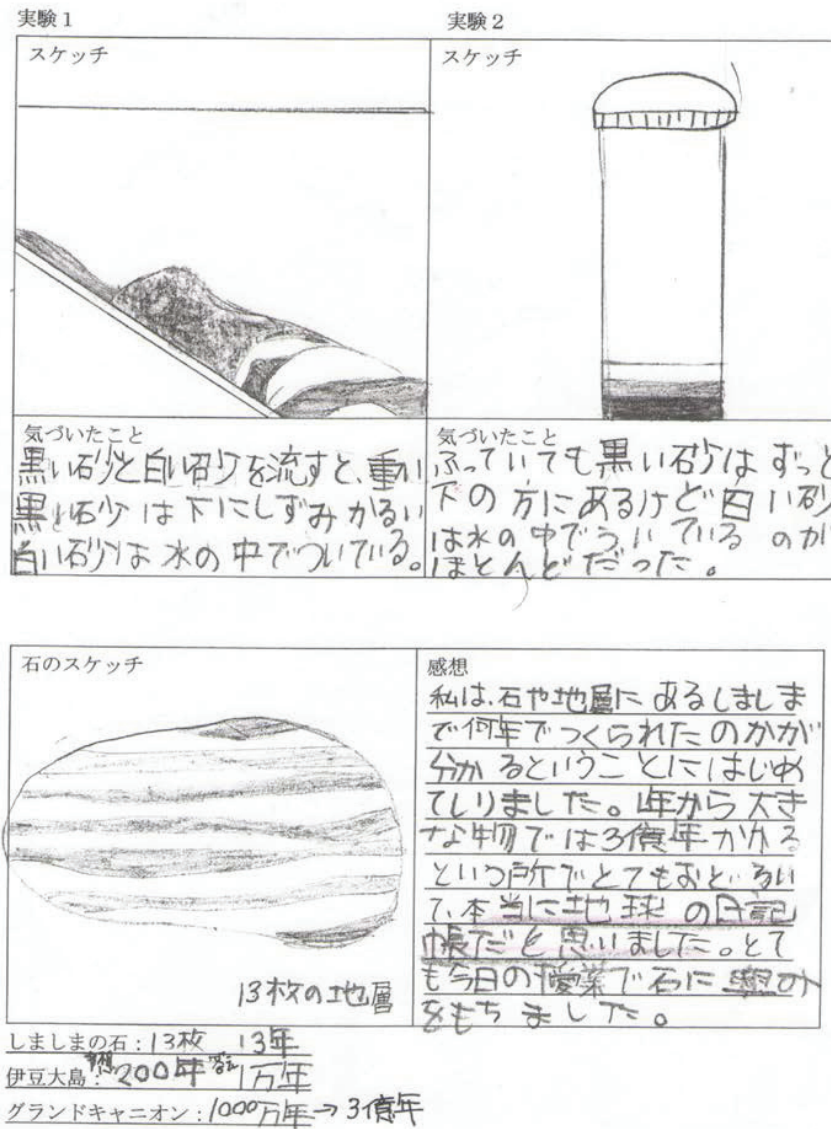 実験1
スケッチ
気づいたこと
黒い砂と白い砂を流すと、重い
黒い砂は下にしずみかるい
白い砂は水の中でういている。
実験2
スケッチ
気づいたこと
ふっていても黒い砂はずっと
下の方にあるけど白い砂
は水の中でういているのが
ほとんどだった。
石のスケッチ
13枚の地層
感想
私は、石や地層にあるしましま
で何年でつくられたのかが
分かるということにはじめ
てしりました。1年から大き
な物では3億年かかる
という所でとてもおどろい
て、本当に地球の日記
帳だと思いました。とて
も今日の授業で石に
をもちました。
しましまの石:13枚 13年
伊豆大島:予想200年 答え1万年
グランドキャニオン:1000万年→3億年